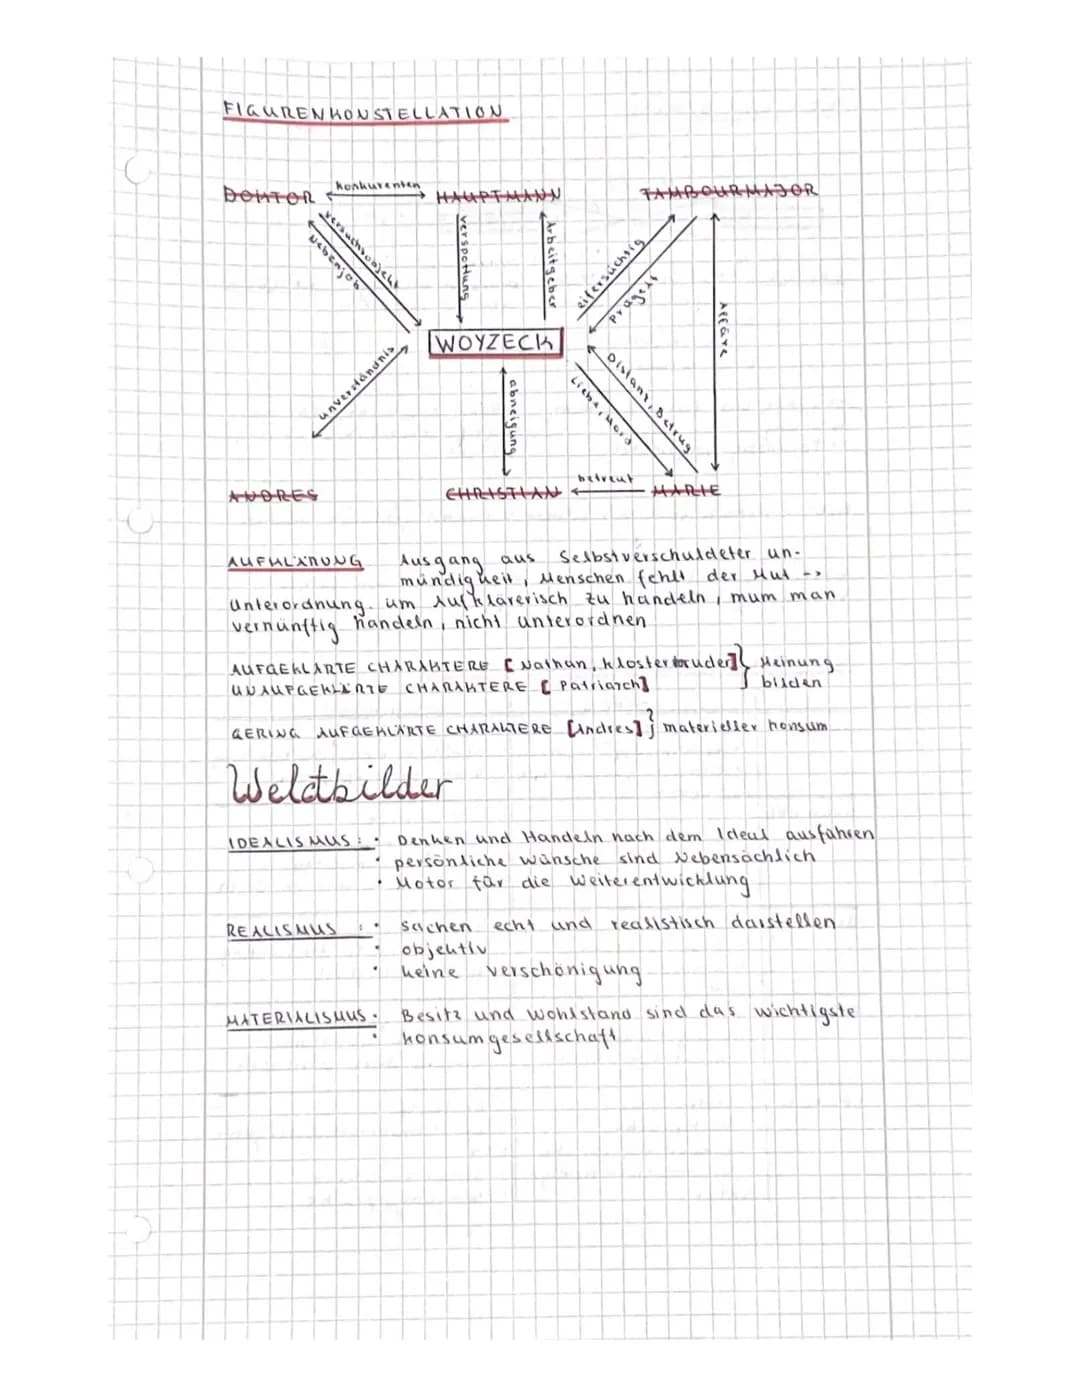 FIGURENKONSTELLATION
DOKTOR konkurenten HAUPTMANN TAMBOURMAJOR
versuchsobjekt
Nebenjob
verspottung
Arbeitgeber
eifersüchtig
Prügelt
Affäre
WOYZECK
unverständnis
abneigung
Liebe, Mord
Distanz, Betrug
ANDRES CHRISTIAN betreut MARIE
AUFKLÄRUNG Ausgang aus Selbstverschuldeter un-
mündigkeit, Menschen fehlt der Mut ->
Unterordnung. um Aufklärerisch zu handeln, mum man
vernünftig handeln, nicht unterordnen
AUFGEKLÄRTE CHARAKTERE [Nathan, Klosterbruder] } Meinung
UNAUFGEKLÄRTE CHARAKTERE [Patriarch] bilden
GERING AUFGEKLÄRTE CHARAKTERE [Andres] } materieller konsum
Weltbilder
IDEALISMUS: • Denken und Handeln nach dem Ideal ausführen
• persönliche wünsche sind Nebensächlich
• Motor für die Weiterentwicklung
REALISMUS : • Sachen echt und realistisch darstellen
• objektiv
• keine verschönigung
MATERIALISMUS • Besitz und Wohlstand sind das wichtigste
• konsumgesellschaft